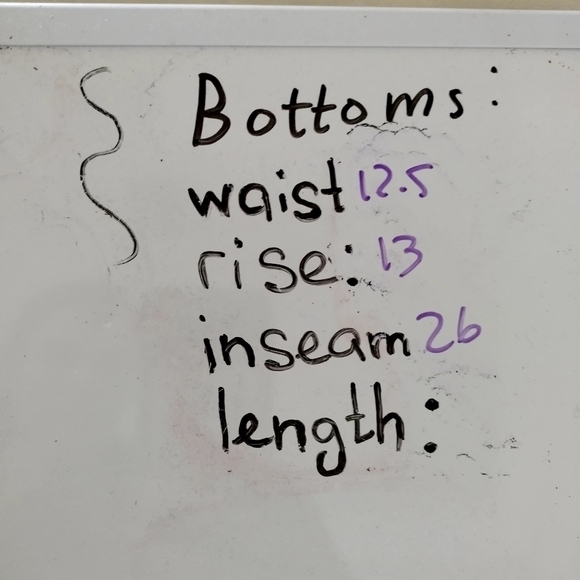 Bottoms:
waist 12.5
rise: 13
inseam 26
length: